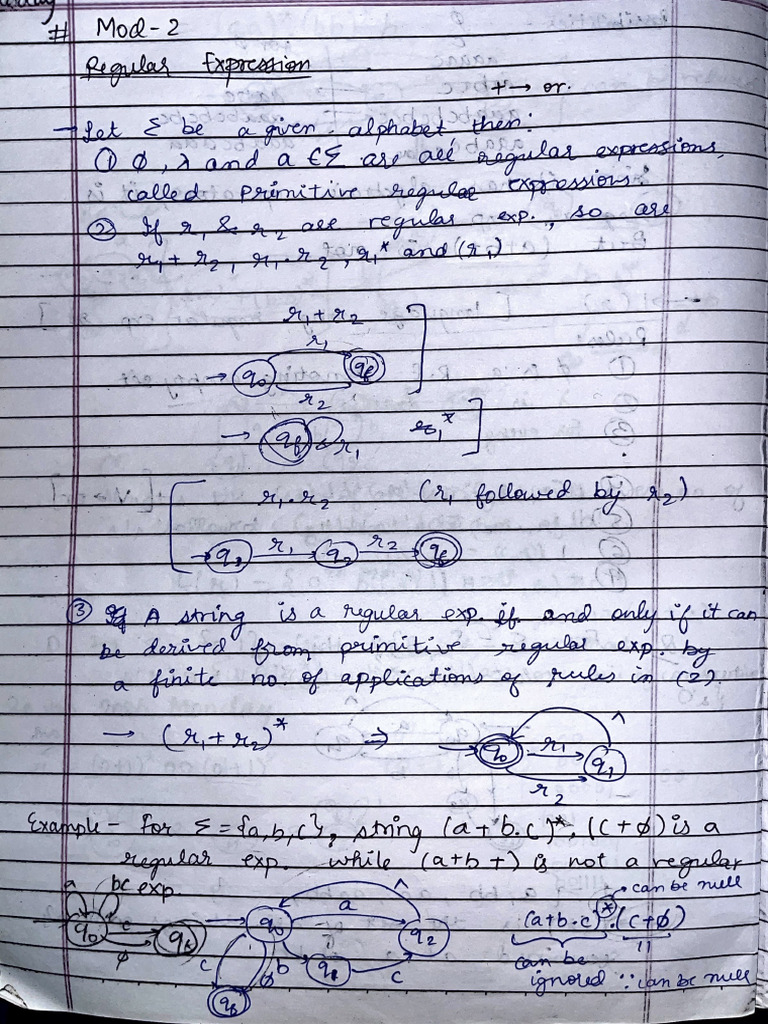 # Mod-2
Regular Expression
+ → or.
→ Let Σ be a given alphabet then:
① ϕ, λ and a ∈ Σ are all regular expressions,
called primitive regular expressions.
② If r₁ & r₂ are regular exp., so are
r₁ + r₂, r₁.r₂, r₁* and (r₁)
r₁ + r₂
r₁
→ q₀ qf
r₂
→ qf r₁ r₁*
r₁.r₂ (r₁ followed by r₂)
→ q₁ r₁ q₂ r₂ qf
③ A string is a regular exp. if and only if it can
be derived from primitive regular exp. by
a finite no. of applications of rules in (2).
→ (r₁ + r₂)* ⇒ q₀ r₁ q₁ λ
r₂
Example - For Σ = {a, b, c}, string (a + b.c)*.(c + ϕ) is a
regular exp. while (a+b+) is not a regular
exp.
a bc λ can be null
q₀ c qf q₀ a q₂ (a+b.c)*.(c+ϕ)
ϕ c ϕ b q₁ c can be
ignored ∵ can be null